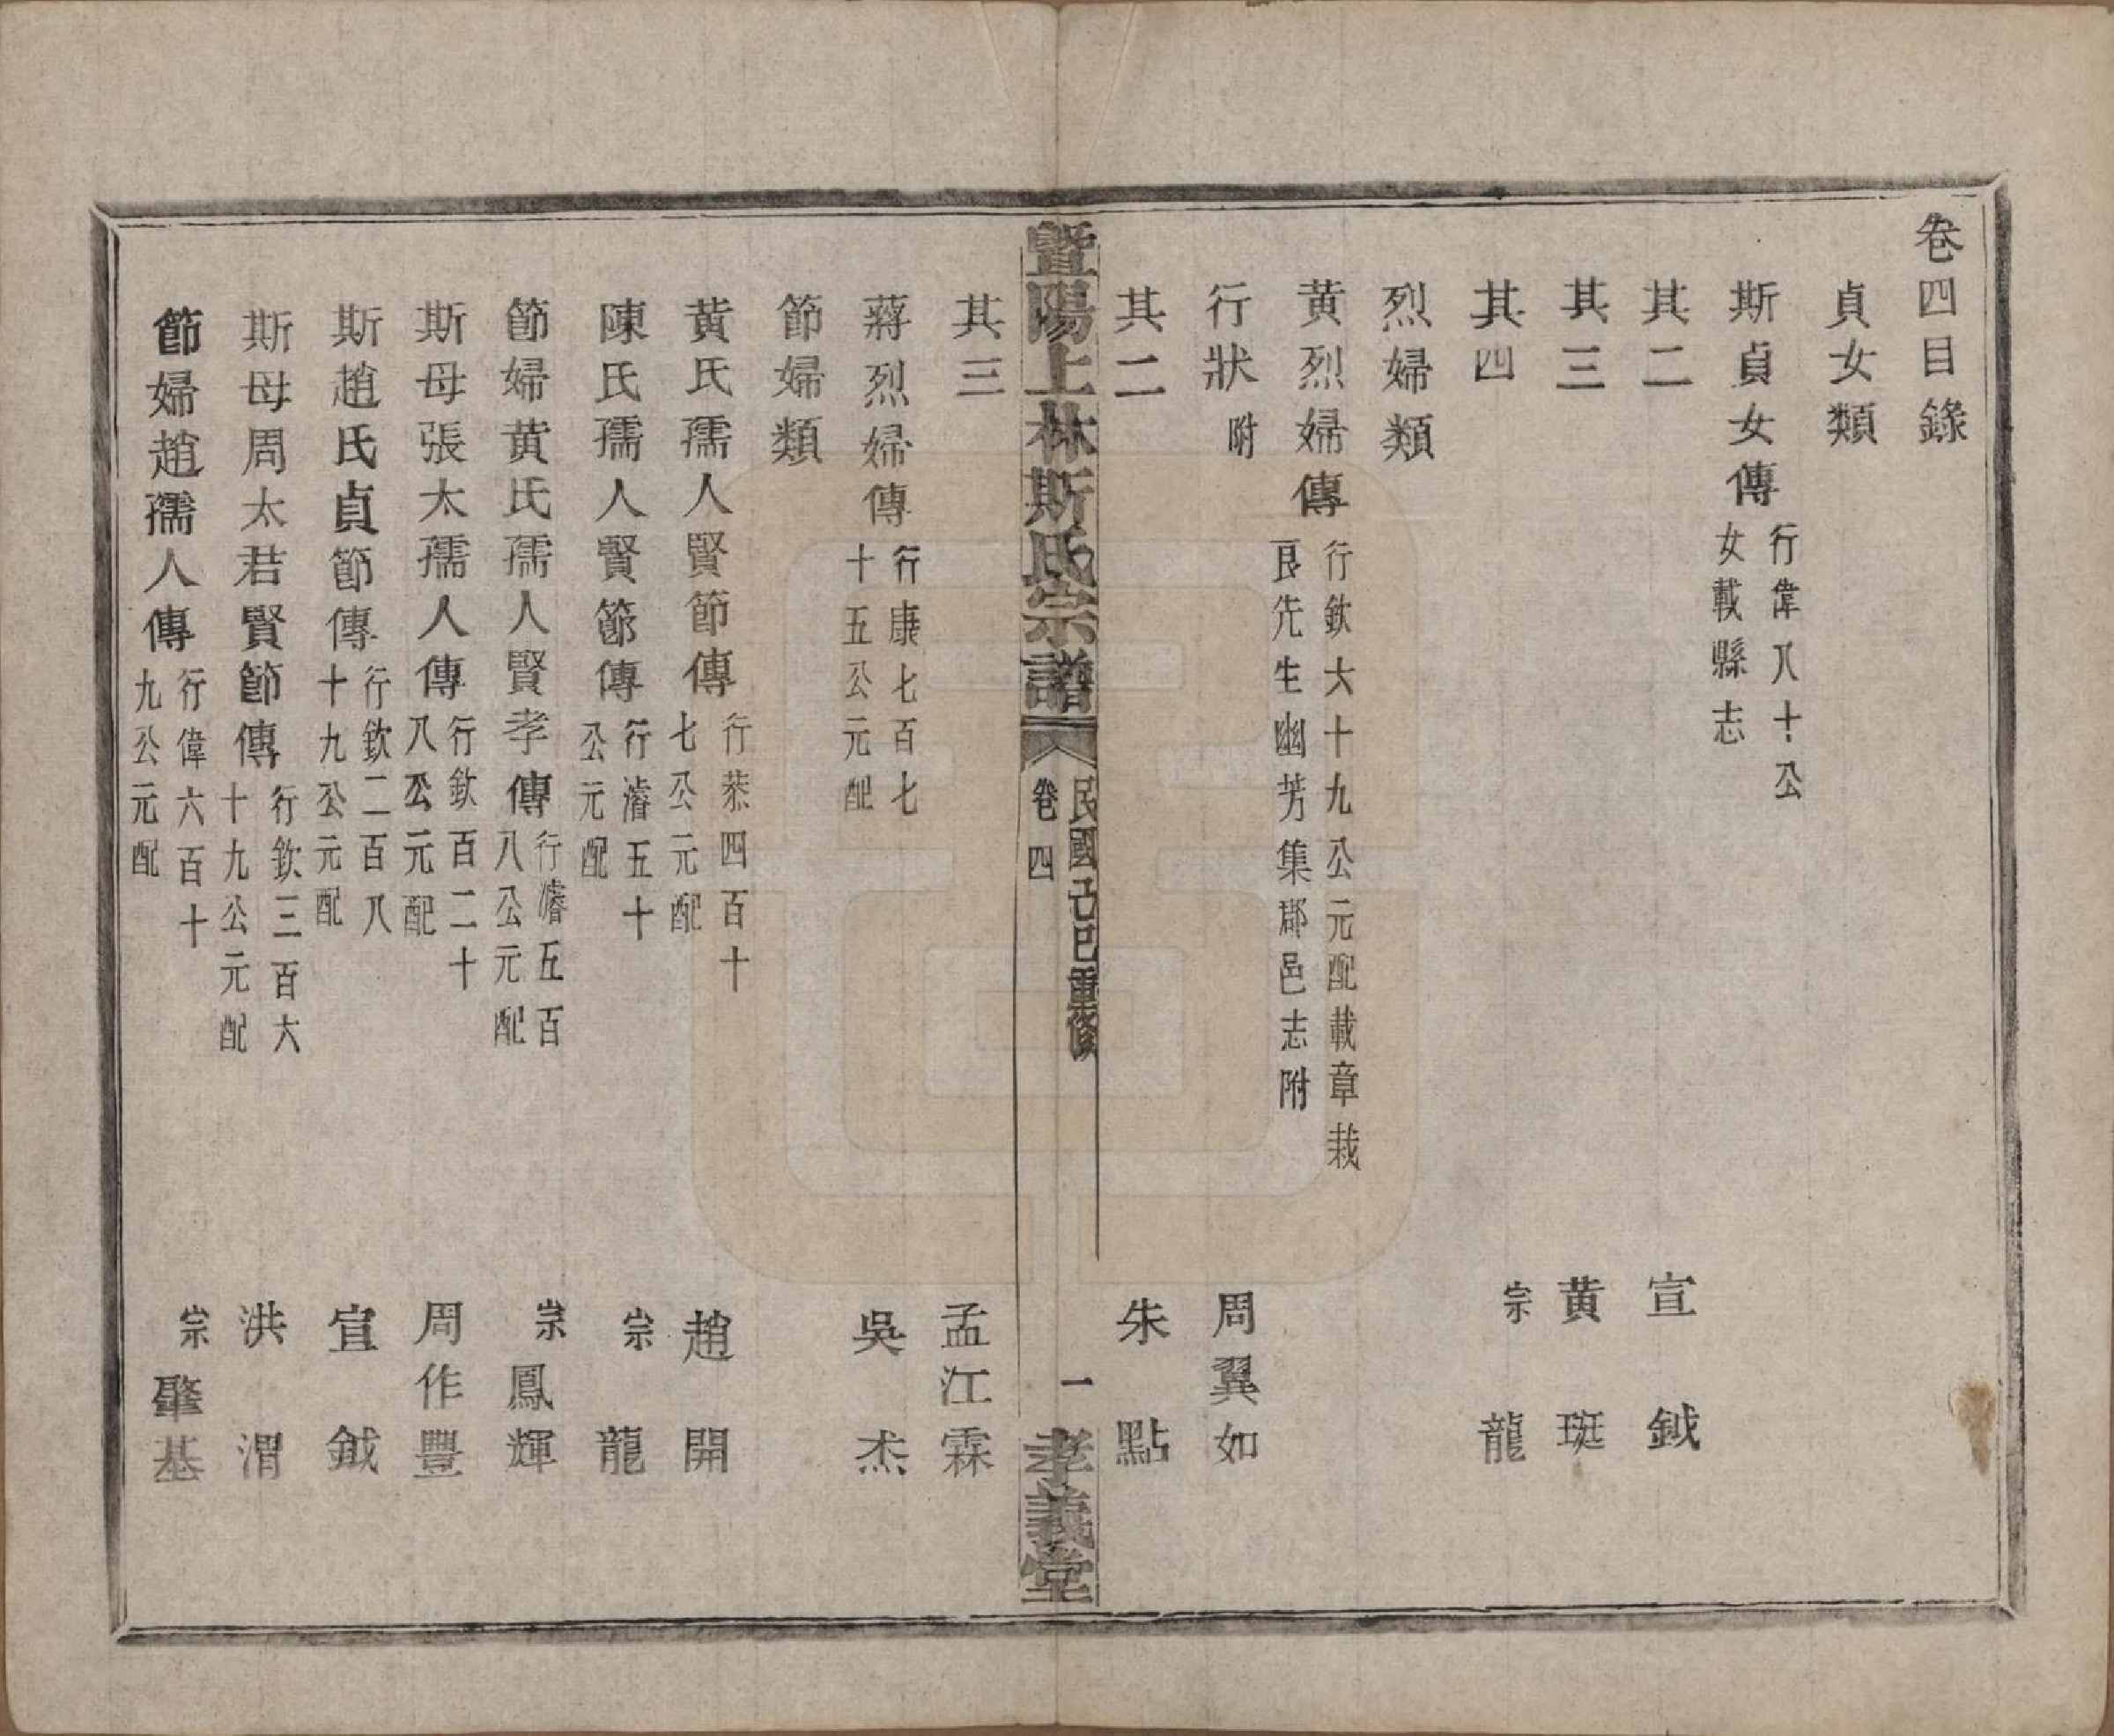 卷四目錄
貞女類
斯貞女傳 行偉八十公女載縣志
其二 宣鉞
其三 黃珽
其四 宗龍
烈婦類
黃烈婦傳 行欽大十九公元配載章栽良先生幽芳集郡邑志附
行狀附 周翼如
其二 朱點
暨陽上林斯氏宗譜
卷四
民國己巳重修
一
孝義堂
其三 孟江霖
蔣烈婦傳 行康七百七十五公元配 吳杰
節婦類
黃氏孺人賢節傳 行恭四百十七公元配 趙開
陳氏孺人賢節傳 行濬五十公元配 宗龍
節婦黃氏孺人賢孝傳 行濬五百八公元配 宗鳳輝
斯母張太孺人傳 行欽百二十八公元配 周作豐
斯趙氏貞節傳 行欽二百八十九公元配 宣鉞
斯母周太君賢節傳 行欽三百六十九公元配 洪渭
節婦趙孺人傳 行偉六百十九公元配 宗肇基